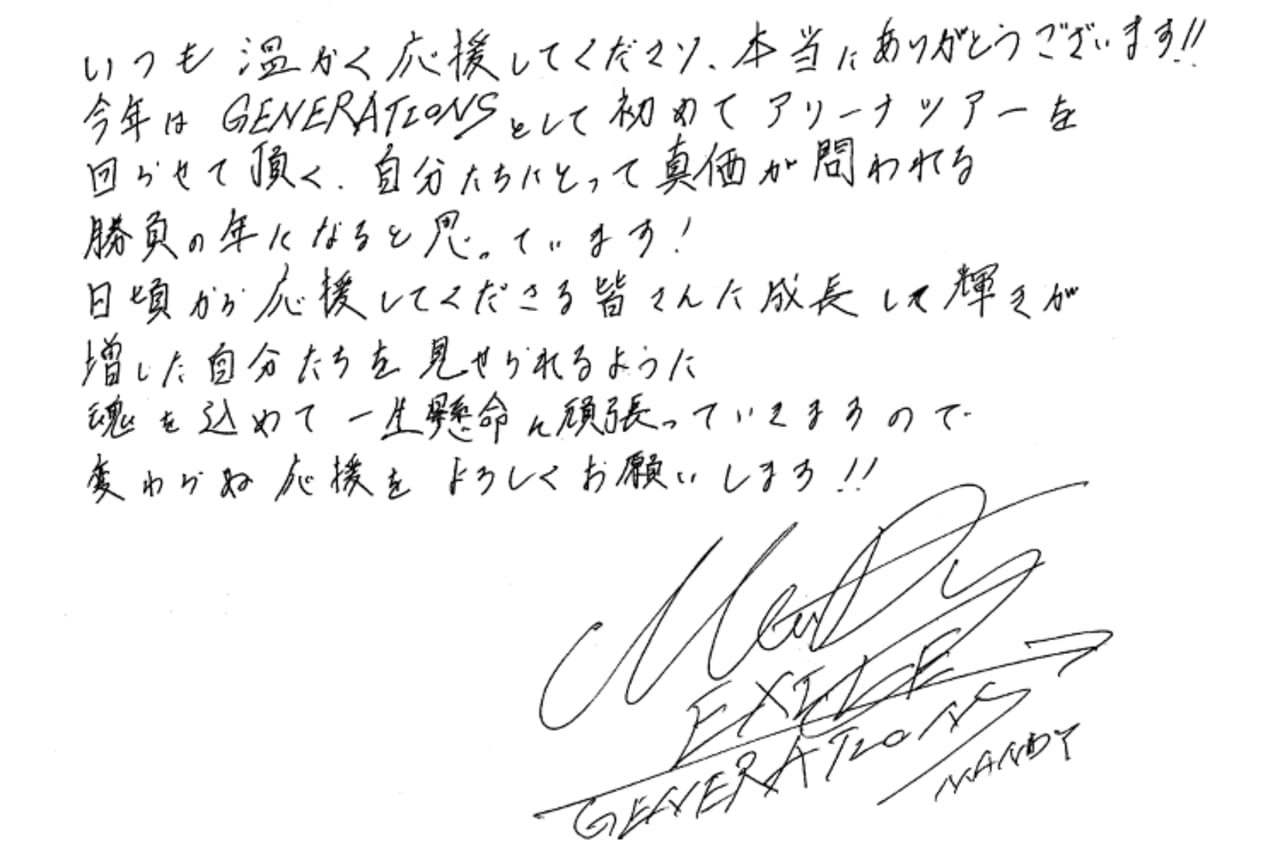 いつも温かく応援してくださり、本当にありがとうございます!!
今年はGENERATIONSとして初めてアリーナツアーを
回らせて頂く、自分たちにとって真価が問われる
勝負の年になると思っています!
日頃から応援してくださる皆さんに成長して輝きが
増した自分たちを見せられるように
魂を込めて一生懸命に頑張っていきますので
変わらぬ応援をよろしくお願いします!!
Mandy
EXILE
GENERATIONS
MANDY